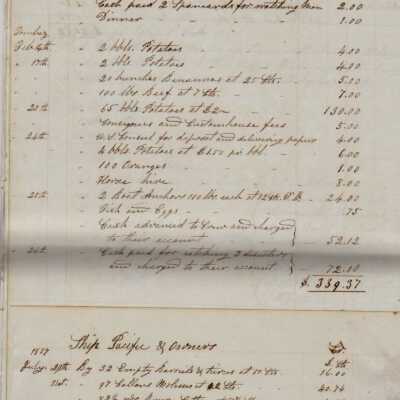 Cash paid 2 Spaniards for watching Men 2.00
Dinner 1.00
Tumbes
Feb 4th 2 bbls. Potatoes 4.00
17th 2 bbls Potatoes 4.00
20 bunches Bananas at 25 Cts. 5.00
100 lbs Beef at 7 Cts. 7.00
20th 65 bbls Potatoes at $2 130.00
Consignees and Customhouse fees 5.00
24th U.S. Consul for deposit and delivering papers 4.00
4 bbls. Potatoes at $1.50 per bbl. 6.00
100 Oranges 1.00
Horse hire 3.00
25th 2 Boat Anchors 100 lbs each at 12 Cts. 24.00
Fish and Eggs .75
Cash advanced to Crew and charged
to their account 52.12
26th Cash paid for catching 3
and charged to their account 72.10
$ 339.37
Ship Pacific & Owners Cr.
$ Cts
July By 32 Empty Barrels & at 50 Cts. 16.00
97 Gallons at 42 Cts. 40.74